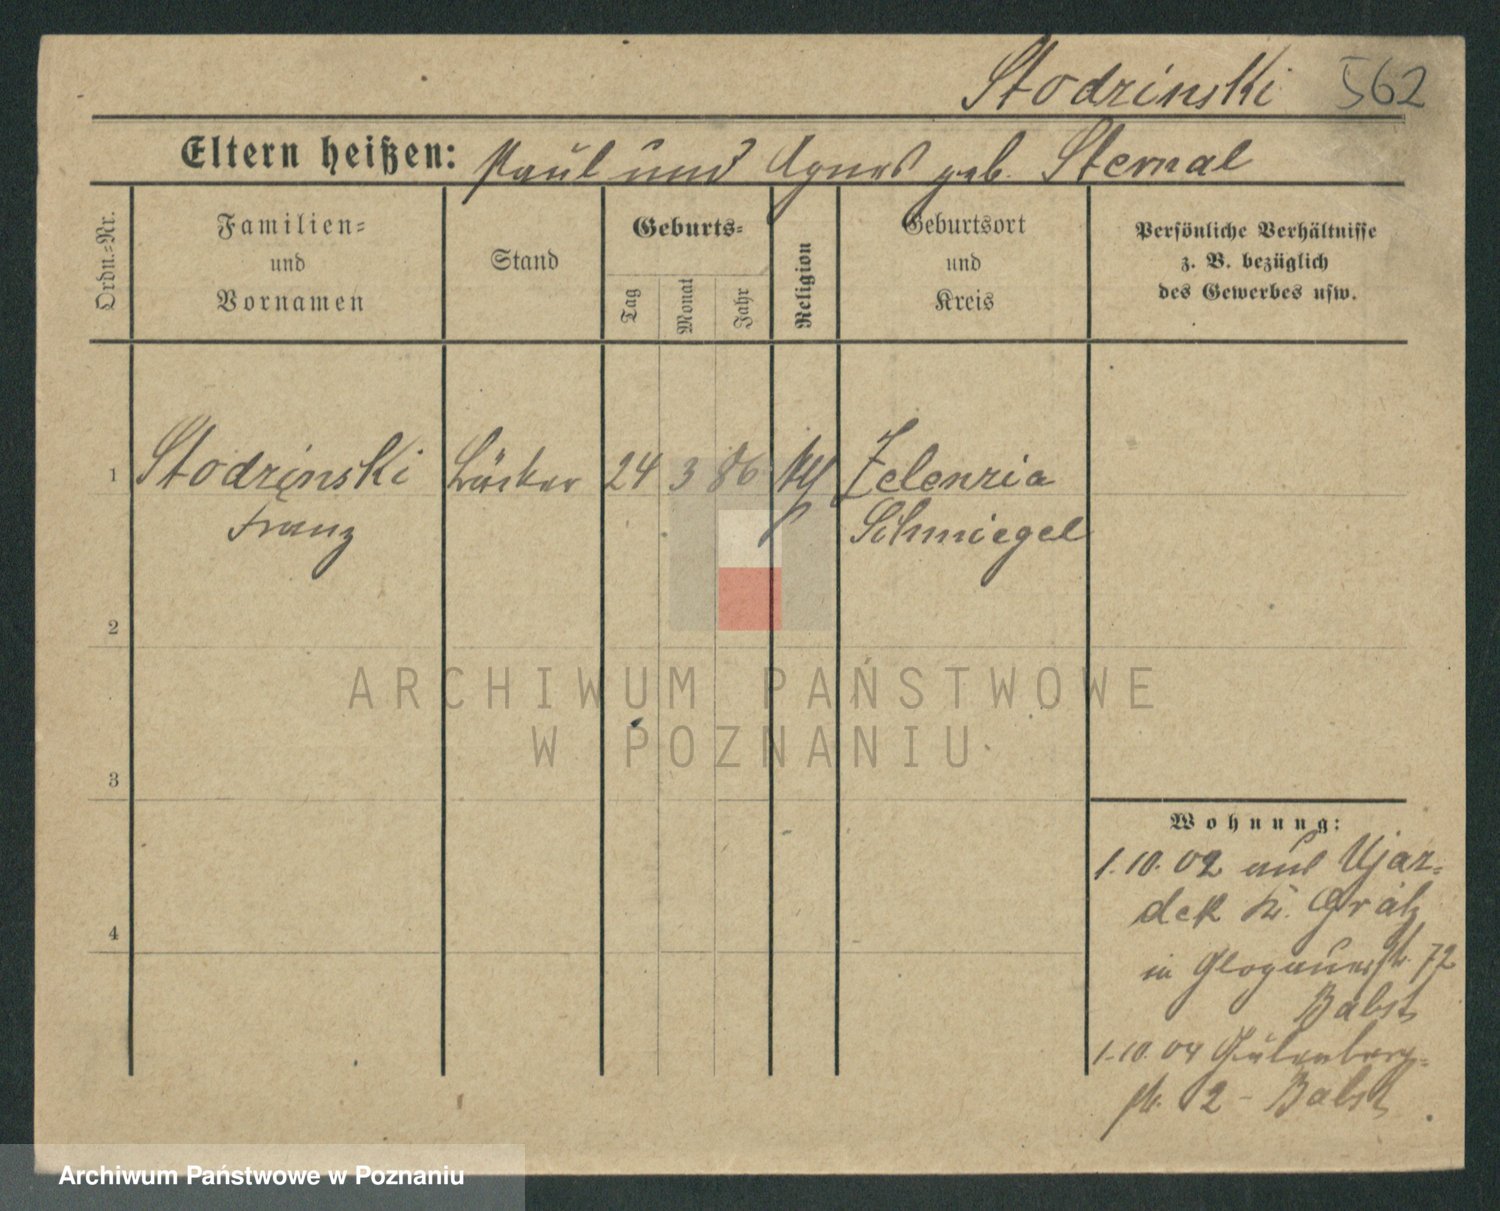 Stodzinski 562
Eltern heißen: Paul und Agnes geb. Sternal
Ordn.-Nr.
Familien-
und
Vornamen
Stand
Geburts-
Tag
Monat
Jahr
Religion
Geburtsort
und
Kreis
Persönliche Verhältnisse
z. B. bezüglich
des Gewerbes usw.
1 Stodzinski 24 3 86 Zelenzia
Franz Schmiegel
2
3
4
ARCHIWUM PAŃSTWOWE
W POZNANIU
Wohnung:
1.10.02 aus Ujaz-
dek Kr. Grätz
in Glogauerstr. 72
Babst
1.10.04 Gutenberg-
str. 2 - Babst
Archiwum Państwowe w Poznaniu